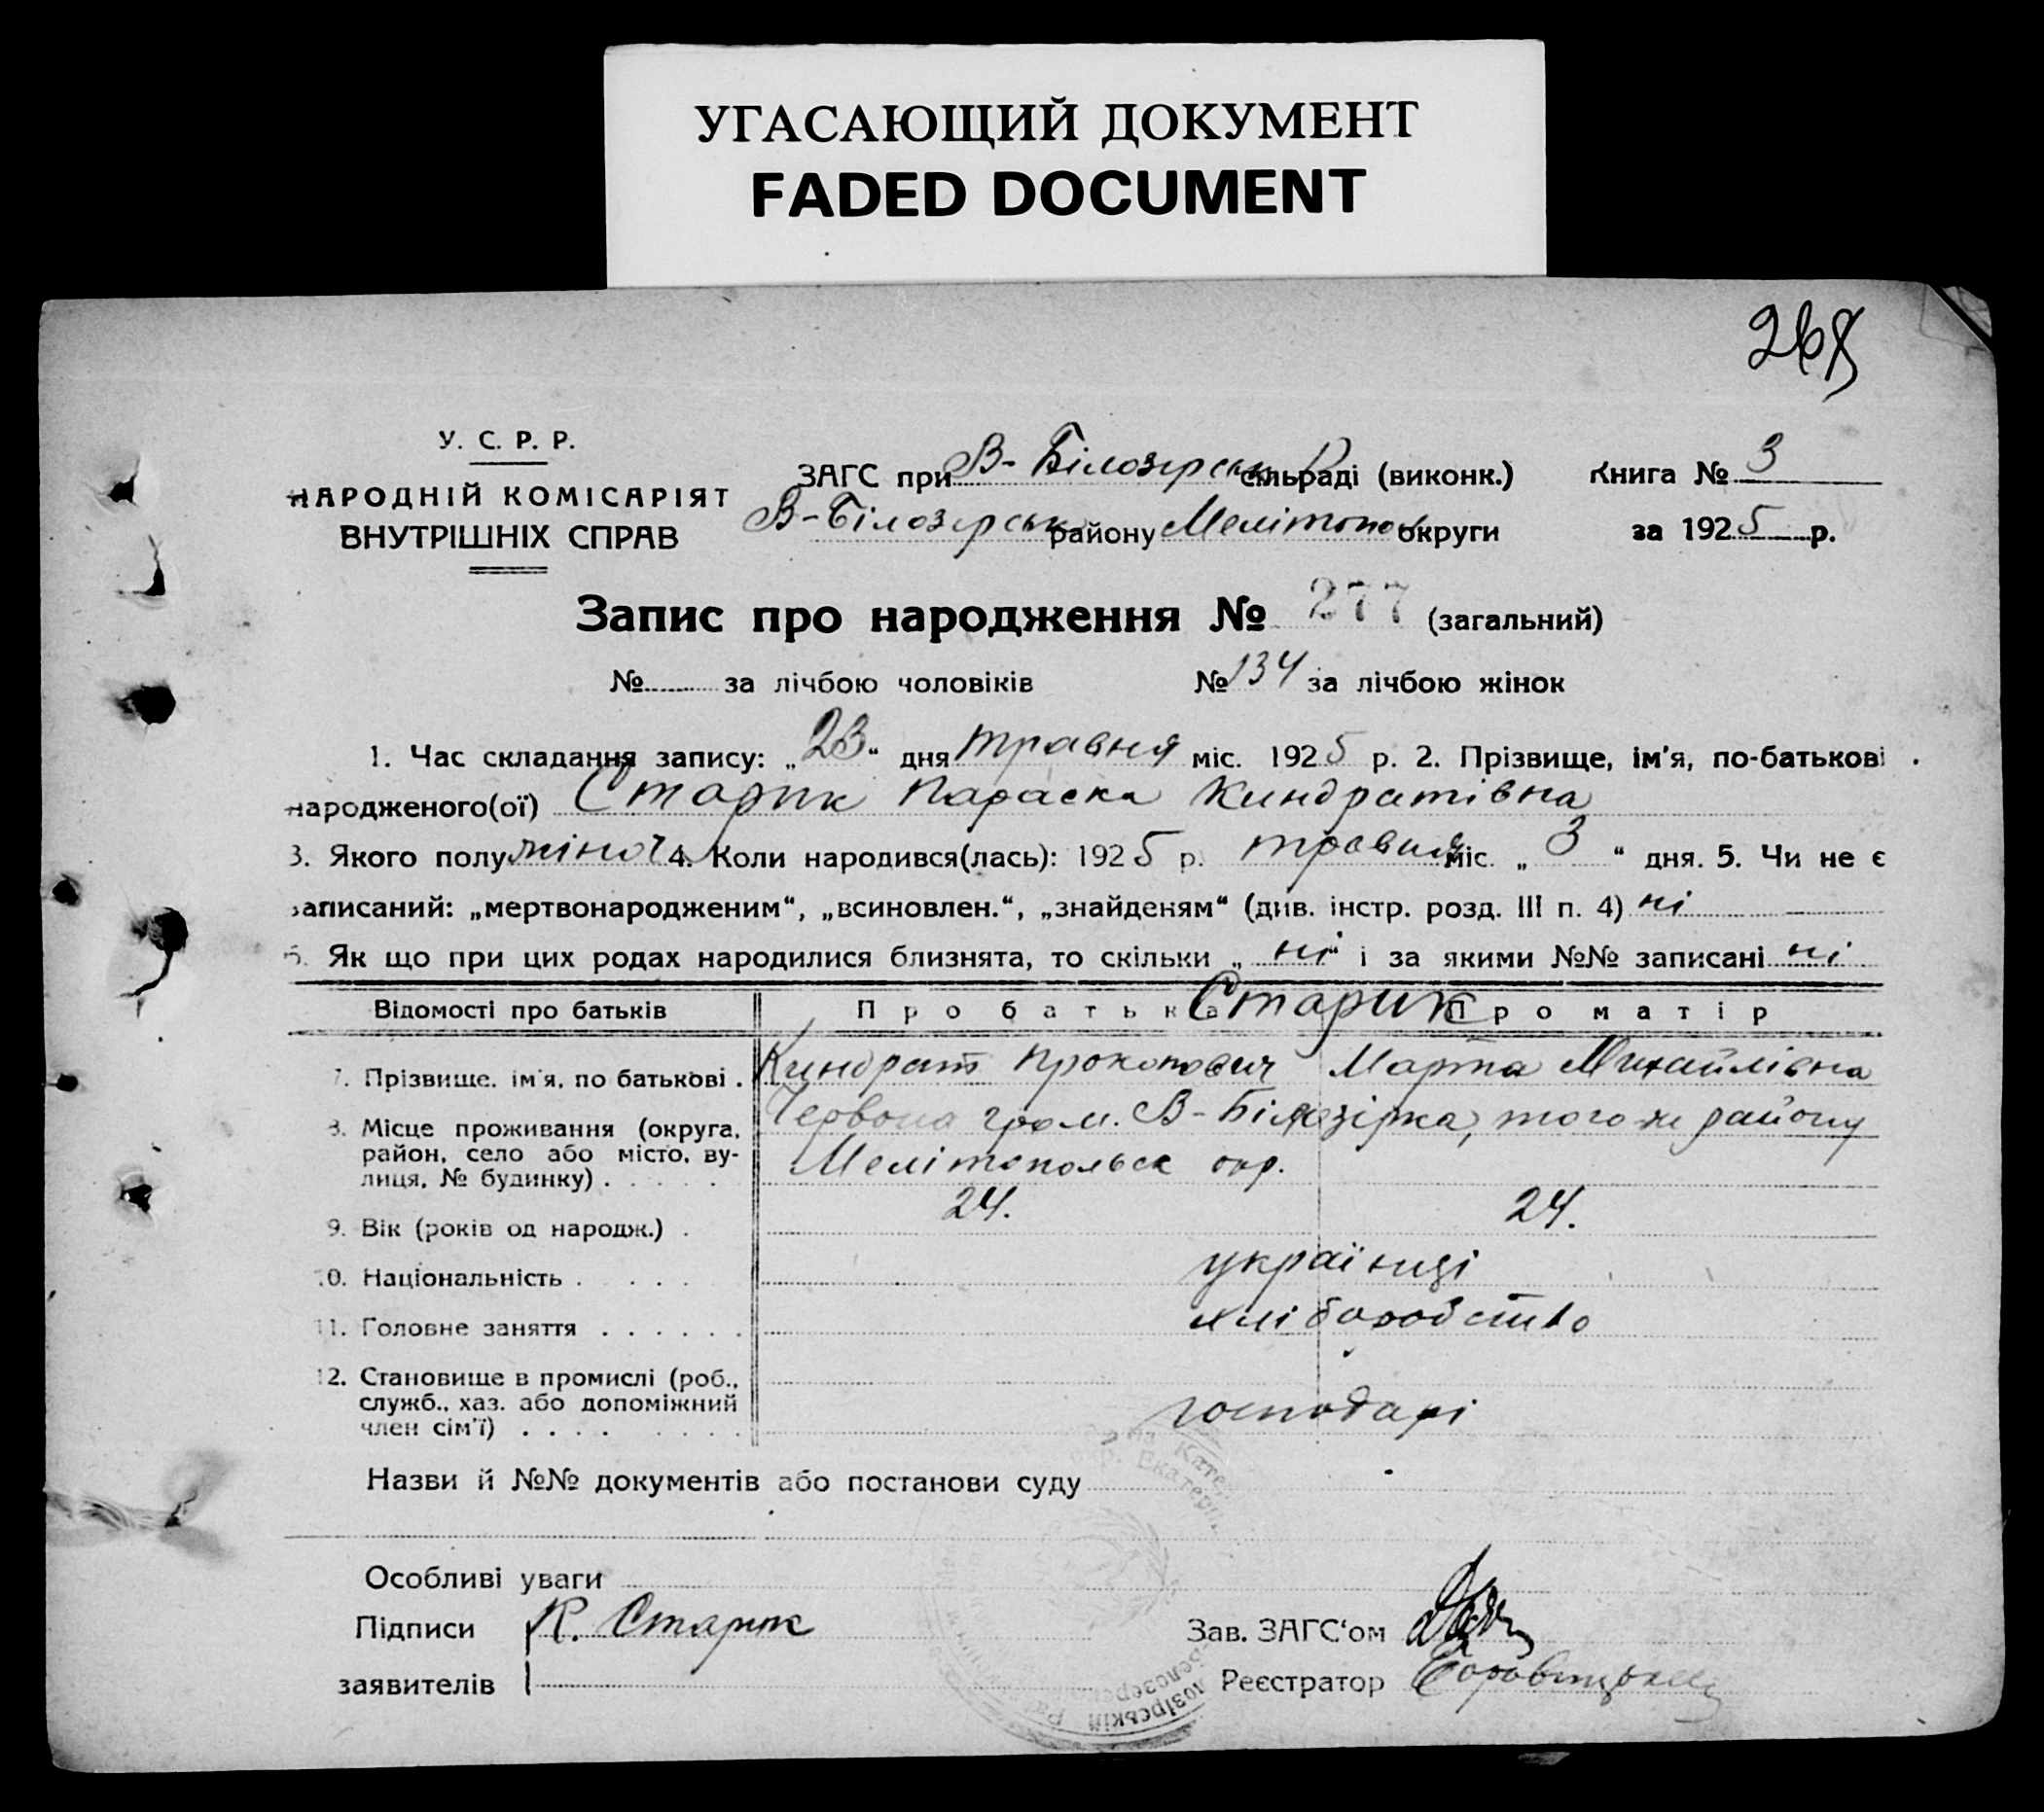 УГАСАЮЩИЙ ДОКУМЕНТ
FADED DOCUMENT
268
У. С. Р. Р.
НАРОДНІЙ КОМІСАРІЯТ
ВНУТРІШНІХ СПРАВ
ЗАГС при В-Білозерськ сільраді (виконк.) Книга № 3
В-Білозерськ району Мелітопол округи за 1925 р.
Запис про народження № 277 (загальний)
№ за лічбою чоловіків № 134 за лічбою жінок
1. Час складання запису: „23“ дня травня міс. 1925 р. 2. Прізвище, ім'я, по-батькові
народженого(ої) Старик Параска Киндратівна
3. Якого полу жіноч 4. Коли народився(лась): 1925 р. травня міс. „3“ дня. 5. Чи не є
записаний: „мертвонародженим“, „всиновлен.“, „знайденям“ (див. інстр. розд. III п. 4) ні
6. Як що при цих родах народилися близнята, то скільки „ні“ і за якими №№ записані ні
Відомості про батьків Про батька Старик Про матір
7. Прізвище, ім'я, по батькові . Киндрат Прокопович Марта Михайлівна
8. Місце проживання (округа, район, село або місто, вулиця, № будинку) . . . . . Червона гром. В-Білозірка, того-ж району
Мелітопольск окр.
9. Вік (років од народж.) . 24. 24.
10. Національність . . . . . українці
11. Головне заняття . . . . . . хліборобство
12. Становище в промислі (роб.,
служб., хаз. або допоміжний
член сім'ї) . . . . . . . . господарі
Назви й №№ документів або постанови суду
Особливі уваги
Підписи К. Старик Зав. ЗАГС‘ом
заявителів Реєстратор